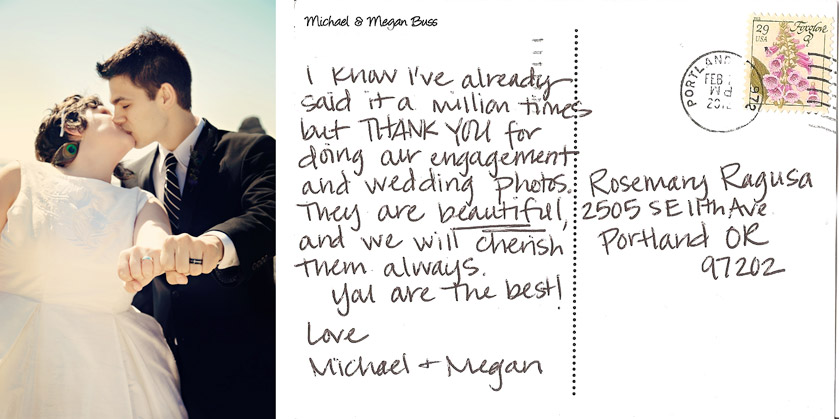 Michael & Megan Buss
I know I've already
said it a million times
but THANK YOU for
doing our engagement
and wedding photos.
They are beautiful,
and we will cherish
them always.
You are the best!
Love
Michael + Megan
29
USA
Foxglove
PORTLAND
FEB
PM
972
Rosemary Ragusa
2505 SE 11th Ave
Portland OR
97202